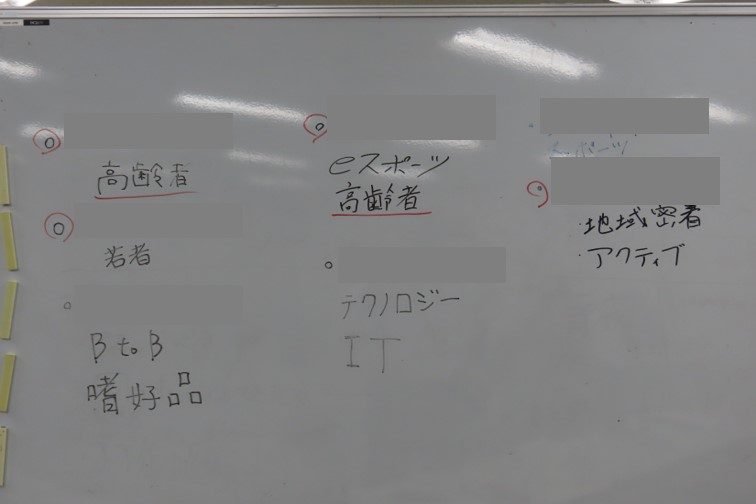 高齢者
若者
B to B
嗜好品
eスポーツ
高齢者
テクノロジー
IT
スポーツ
・地域密着
・アクティブ